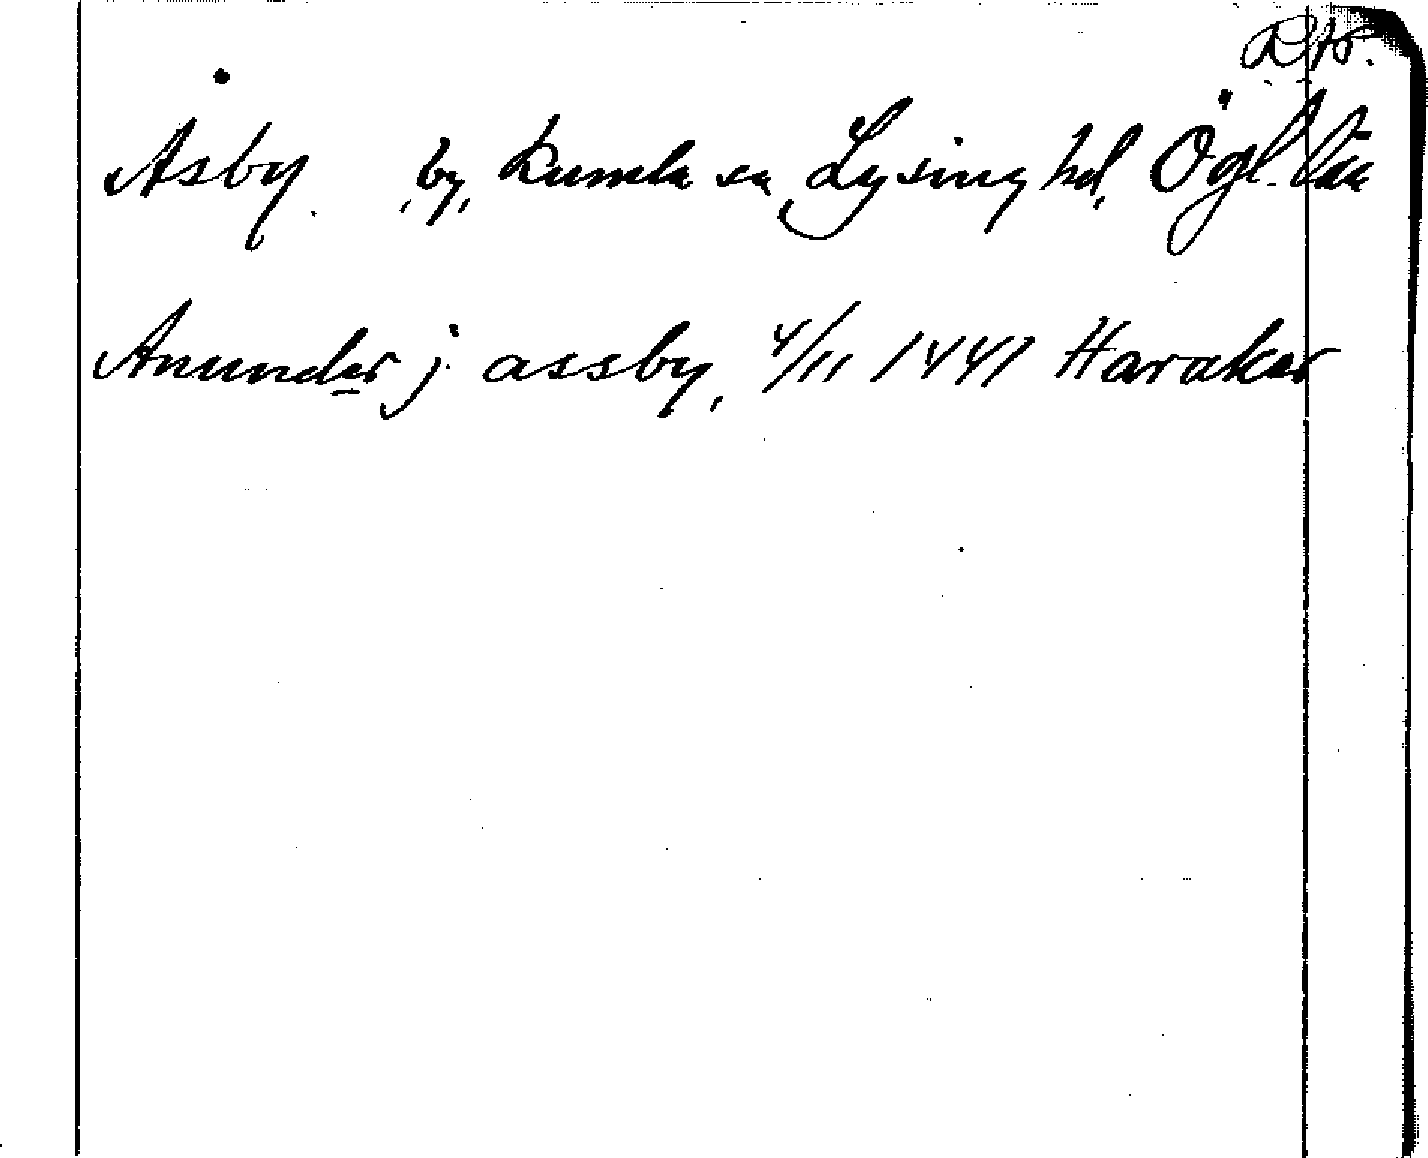 Åsby. by, Kumla sn Lysing hd, Ögl. län
Anunder j. assby, 4/11 1441 Haraker